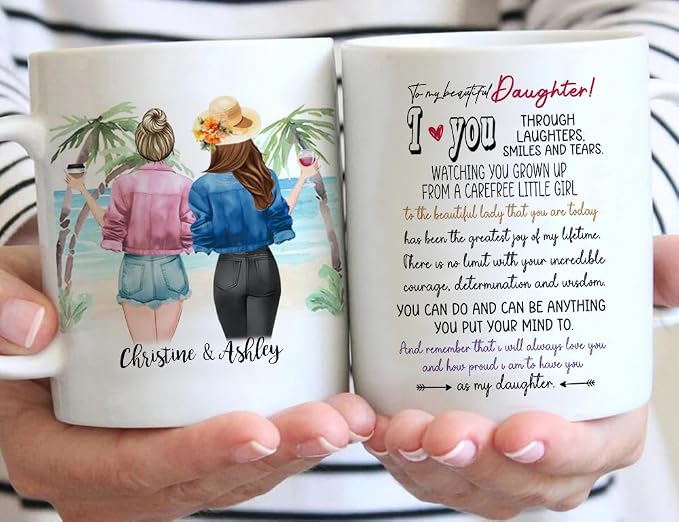 Christine & Ashley
To my beautiful Daughter!
I ♥ you
THROUGH
LAUGHTERS,
SMILES AND TEARS.
WATCHING YOU GROWN UP
FROM A CAREFREE LITTLE GIRL
to the beautiful lady that you are today
has been the greatest joy of my lifetime.
There is no limit with your incredible
courage, determination and wisdom.
YOU CAN DO AND CAN BE ANYTHING
YOU PUT YOUR MIND TO.
And remember that i will always love you
and how proud i am to have you
as my daughter.